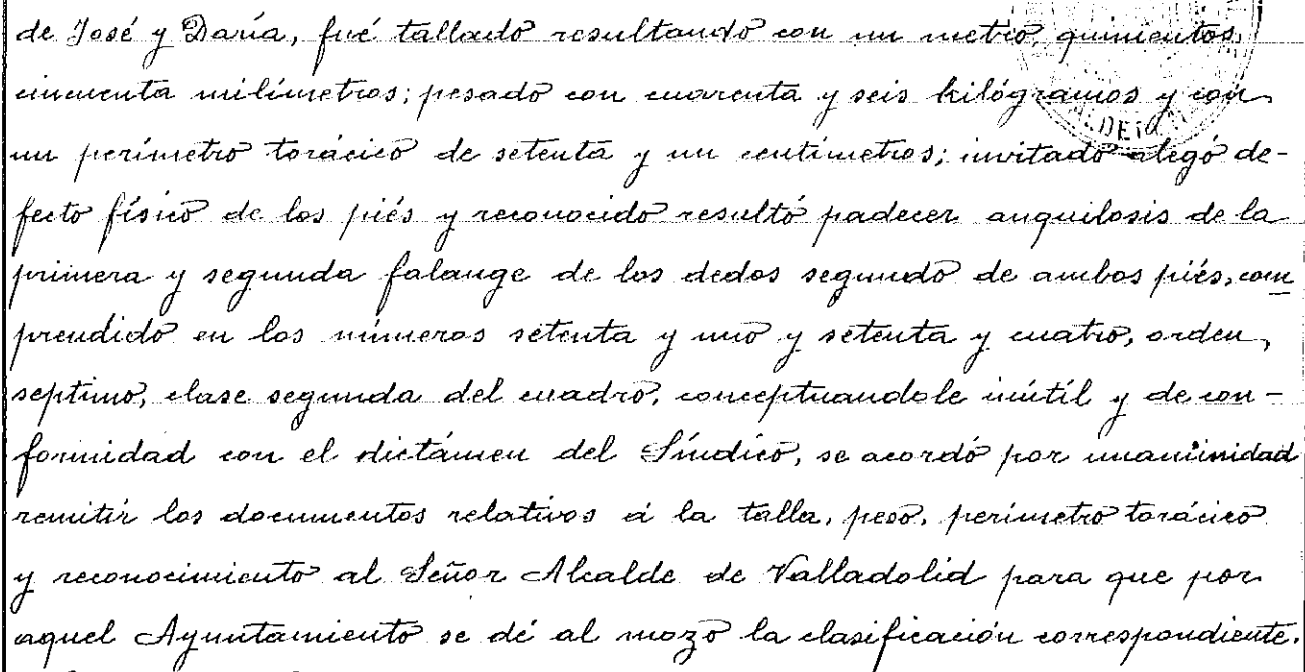 de José y Daría, fué tallado resultando con un metro, quinientos
cincuenta milímetros; pesado con cuarenta y seis kilógramos y con
un perímetro torácico de setenta y un centímetros; invitado alegó de-
fecto físico de los piés y reconocido resultó padecer anquilosis de la
primera y segunda falange de los dedos segundo de ambos piés, com
prendido en los números setenta y uno y setenta y cuatro, orden,
septimo, clase segunda del cuadro, conceptuandole inútil y de con-
formidad con el dictámen del Síndico, se acordó por unanimidad
remitir los documentos relativos á la talla, peso, perímetro torácico
y reconocimiento al Señor Alcalde de Valladolid para que por
aquel Ayuntamiento se dé al mozo la clasificación correspondiente.